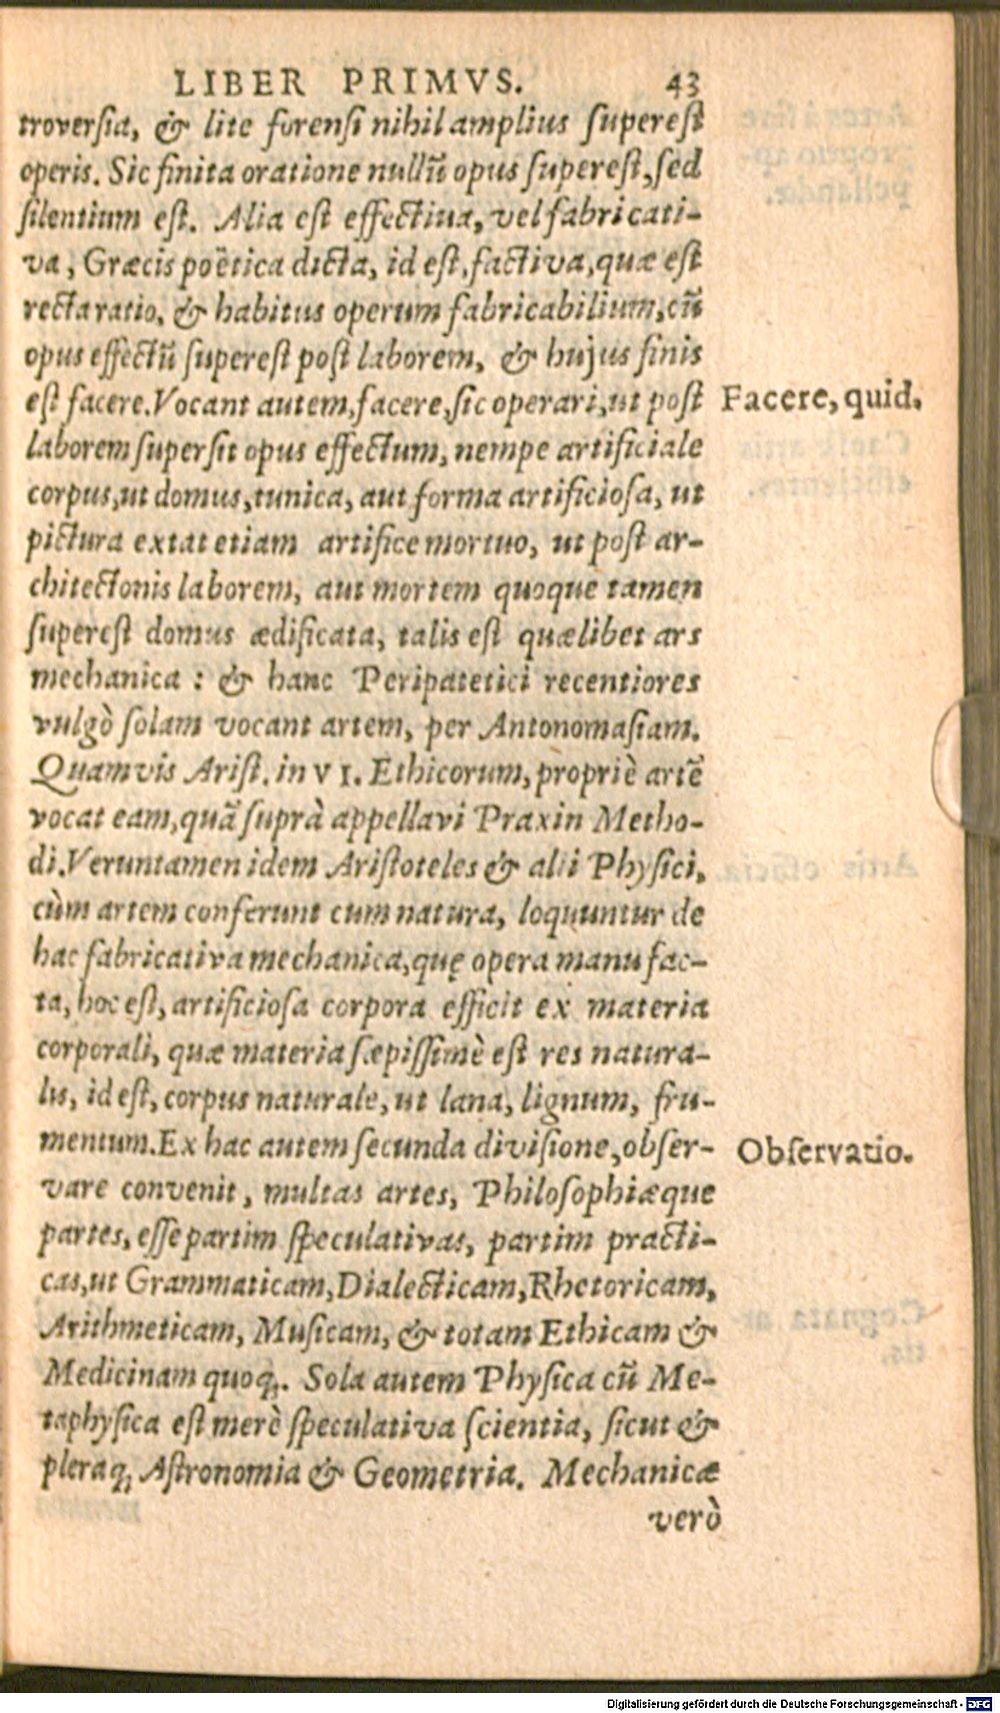 LIBER PRIMVS. 43
troversia, & lite forensi nihil amplius superest
operis. Sic finita oratione nullũ opus superest, sed
silentium est. Alia est effectiua, vel fabricati-
va, Græcis poëtica dicta, id est, factiva, quæ est
recta ratio, & habitus operum fabricabilium, cũ
opus effectũ superest post laborem, & hujus finis
est facere. Vocant autem, facere, sic operari, ut post
Facere, quid.
laborem supersit opus effectum, nempe artificiale
corpus, ut domus, tunica, aut forma artificiosa, ut
pictura extat etiam artifice mortuo, ut post ar-
chitectonis laborem, aut mortem quoque tamen
superest domus ædificata, talis est quælibet ars
mechanica : & hanc Peripatetici recentiores
vulgò solam vocant artem, per Antonomasiam.
Quamvis Arist. in VI. Ethicorum, propriè artẽ
vocat eam, quã suprà appellavi Praxin Metho-
di. Veruntamen idem Aristoteles & alii Physici,
cùm artem conferunt cum natura, loquuntur de
hac fabricativa mechanica, quę opera manu fac-
ta, hoc est, artificiosa corpora efficit ex materia
corporali, quæ materia sæpissimè est res natura-
lis, id est, corpus naturale, ut lana, lignum, fru-
mentum. Ex hac autem secunda divisione, obser-
Observatio.
vare convenit, multas artes, Philosophiæque
partes, esse partim speculativas, partim practi-
cas, ut Grammaticam, Dialecticam, Rhetoricam,
Arithmeticam, Musicam, & totam Ethicam &
Medicinam quoq;. Sola autem Physica cũ Me-
taphysica est merè speculativa scientia, sicut &
pleraq; Astronomia & Geometria. Mechanicæ
verò
Digitalisierung gefördert durch die Deutsche Forschungsgemeinschaft - DFG